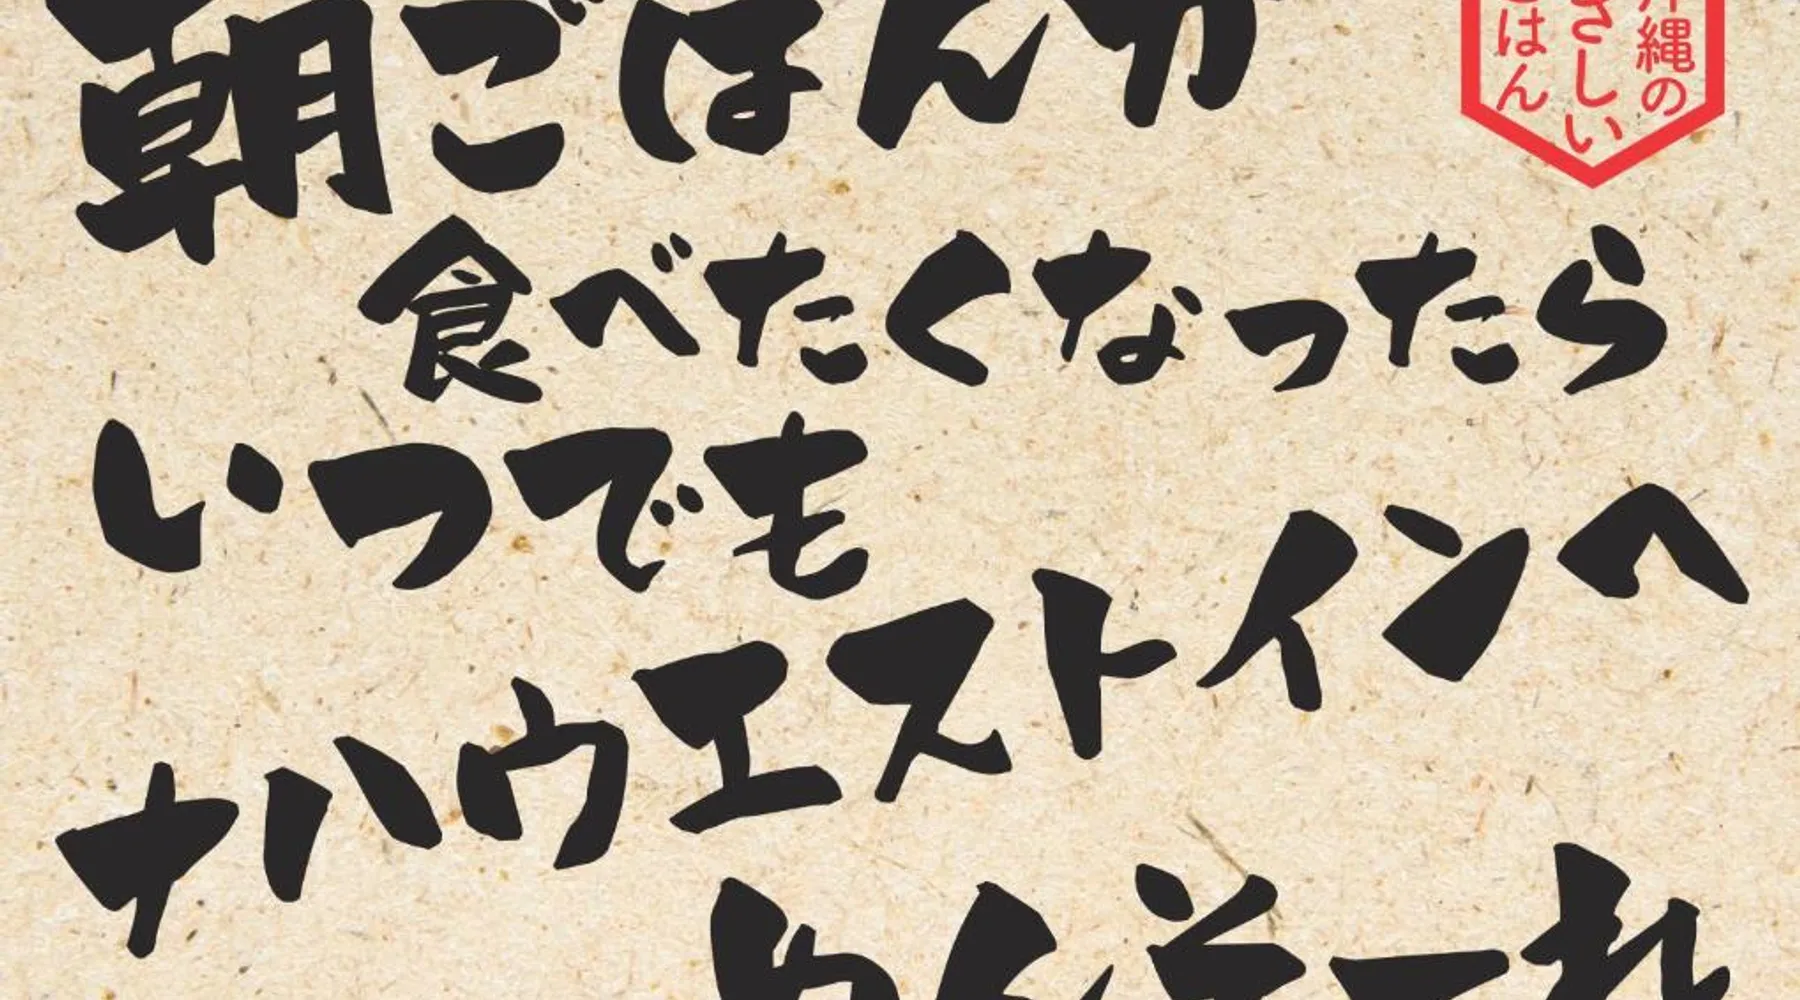 朝ごはんが
食べたくなったら
いつでも
ナハウエストインへ
めんそーれ
沖縄の
やさしい
ごはん